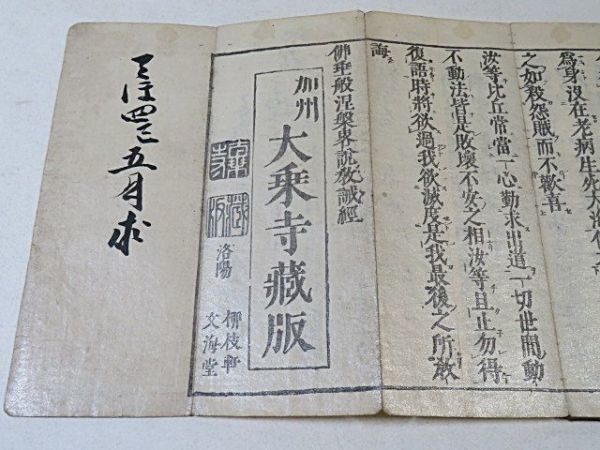 爲身没在老病生死大海
之如殺怨賊而不歡喜
汝等比丘常當一心勤求出道一切世間動
不動法皆是敗壞不安之相汝等且止勿得
復語時將欲過我欲滅度是我最後之所教
誨
佛垂般涅槃畧說教誡經
加州 大乗寺藏版
洛陽
柳枝軒
文海堂
天保四巳五月求